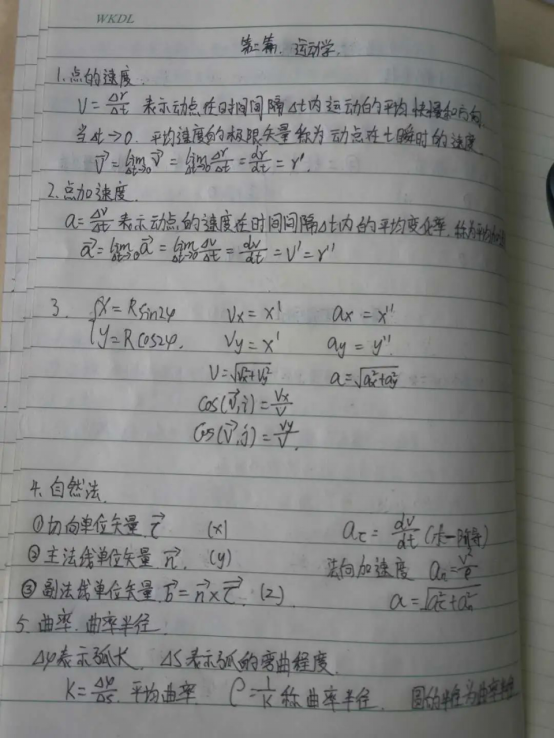 WKDL
第二篇. 运动学.
1.点的速度.
V = Δr/Δt 表示动点在时间间隔Δt内运动的平均快慢和方向.
当Δt→0. 平均速度的极限矢量称为动点在t瞬时的速度
V⃗ = lim Δt→0 V⃗ = lim Δt→0 Δr/Δt = dr/dt = r'.
2.点加速度.
a = Δv/Δt 表示动点的速度在时间间隔Δt内的平均变化率. 称为平均
a⃗ = lim Δt→0 a⃗ = lim Δt→0 Δv/Δt = dv/dt = V' = r''
3. {x = Rsin2φ Vx = x' ax = x''
y = Rcos2φ. Vy = x' ay = y''.
V = √(Vx²+Vy²) a = √(ax²+ay²)
Cos(V⃗,i) = Vx/V
Cos(V⃗,j) = Vy/V.
4. 自然法.
①切向单位矢量 τ⃗ (x) aτ = dv/dt (求一阶导)
②主法线单位矢量 n⃗. (y) 法向加速度 an = V²/ρ
③副法线单位矢量. b⃗ = n⃗ × τ⃗. (z) a = √(aτ²+an²)
5. 曲率. 曲率半径.
Δφ表示弧长. ΔS表示弧的弯曲程度.
K = Δφ/Δs. 平均曲率. ρ = 1/K 称曲率半径. 圆的半径为曲率半径